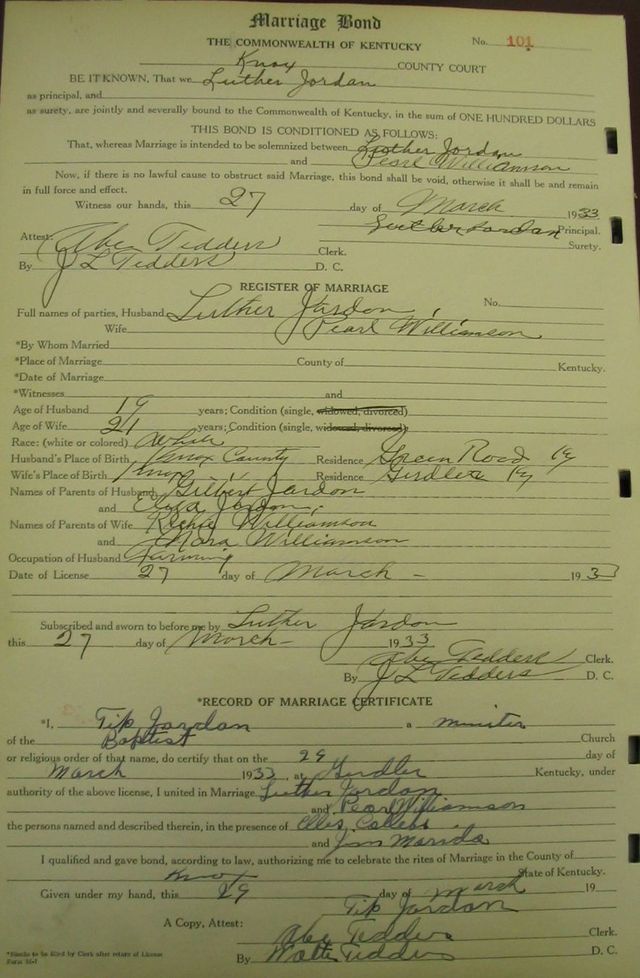 Marriage Bond
THE COMMONWEALTH OF KENTUCKY No. 101
Knox COUNTY COURT
BE IT KNOWN, That we Luther Jordan
as principal, and
as surety, are jointly and severally bound to the Commonwealth of Kentucky, in the sum of ONE HUNDRED DOLLARS
THIS BOND IS CONDITIONED AS FOLLOWS:
That, whereas Marriage is intended to be solemnized between Luther Jordan
and Pearl Williamson
Now, if there is no lawful cause to obstruct said Marriage, this bond shall be void, otherwise it shall be and remain
in full force and effect.
Witness our hands, this 27 day of March 1933.
Luther Jordan Principal.
Attest: Abe Tedders Clerk. Surety.
By J L Tedders D. C.
REGISTER OF MARRIAGE
Full names of parties, Husband Luther Jardon, No.
Wife Pearl Williamson
*By Whom Married
*Place of Marriage County of Kentucky.
*Date of Marriage
*Witnesses and
Age of Husband 19 years; Condition (single, widowed, divorced)
Age of Wife 21 years; Condition (single, widowed, divorced)
Race: (white or colored) White
Husband's Place of Birth Knox County Residence Green Road Ky
Wife's Place of Birth Knox " Residence Girdler Ky
Names of Parents of Husband Gilbert Jardon
and Jardon,
Names of Parents of Wife Williamson
and Nora Williamson
Occupation of Husband Farming
Date of License 27 day of March 1933
Subscribed and sworn to before me by Luther Jardon
this 27 day of March 1933
Abe Tedders Clerk.
By J L Tedders D. C.
*RECORD OF MARRIAGE CERTIFICATE
*I, Tip Jordan a minister
of the Baptist Church
or religious order of that name, do certify that on the 29 day of
March 1933, at Girdler Kentucky, under
authority of the above license, I united in Marriage Luther Jordan
and Pearl Williamson
the persons named and described therein, in the presence of
and Jim
I qualified and gave bond, according to law, authorizing me to celebrate the rites of Marriage in the County of
Knox State of Kentucky.
Given under my hand, this 29 day of March 19
Tip Jordan
A Copy, Attest: Abe Tedders Clerk.
By Walter Tedders D. C.
*Blanks to be filled by Clerk after return of License